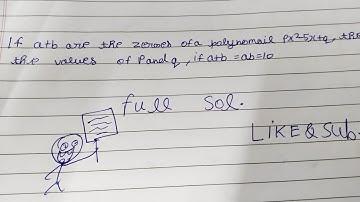 If a+b are the zeroes of a polynomail px²-5x+q, the
the values of p and q, if a+b = ab = 10
full sol.
LIKE & Sub.